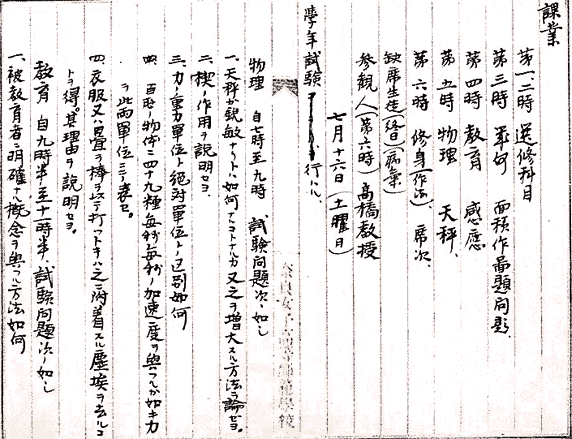 課業
第一、二時 選修科目
第三時 幾何 面積作啚題問題
第四時 教育 感應
第五時 物理 天秤、
第六時 修身(作法)、席次、
缺席生徒(終日)(病氣)
参観人(第六時)高橋教授
七月十六日(土曜日)
學年試驗 行ハル、
物理 自七時至九時 試験問題次ノ如シ
一、天秤ガ鋭敏ナリトハ如何ナルコトナルカ又之ヲ増大スル方法ヲ論セヨ。
二、楔ノ作用ヲ説明セヨ、
三、力ノ重力單位ト絶対單位トノ區別如何
四、百瓦ノ物体ニ四十九糎毎秒毎秒ノ加速度ヲ與フルガ如キ力
ヲ此両單位ニテ表セ。
四、衣服又ハ畳ヲ棒ヲ以テ打ツトキハ之ニ附着スル塵埃ヲ去ルコ
トヲ得、其理由ヲ説明セヨ。
教育 自九時半至十一時半、試験問題次ノ如シ
一、被教育者ニ明確ナル概念ヲ與フル方法如何